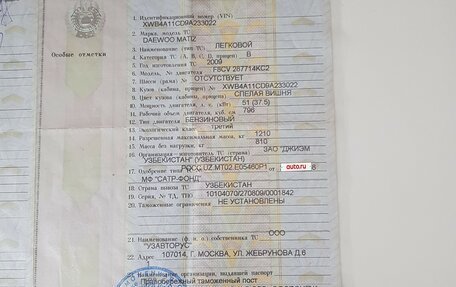 1. Идентификационный номер (VIN)
XWB4A11CD9A233022
2. Марка, модель ТС
DAEWOO MATIZ
3. Наименование (тип ТС) ЛЕГКОВОЙ
Особые отметки
4. Категория ТС (A, B, C, D, прицеп) B
5. Год изготовления ТС 2009
6. Модель, № двигателя F8CV 287714KC2
7. Шасси (рама) № ОТСУТСТВУЕТ
8. Кузов (кабина, прицеп) № XWB4A11CD9A233022
9. Цвет кузова (кабины, прицепа) СПЕЛАЯ ВИШНЯ
10. Мощность двигателя, л. с. (кВт) 51 (37.5)
11. Рабочий объем двигателя, куб. см 796
12. Тип двигателя БЕНЗИНОВЫЙ
13. Экологический класс третий
14. Разрешенная максимальная масса, кг 1210
15. Масса без нагрузки, кг 810
16. Организация - изготовитель ТС (страна) ЗАО "ДЖИЭМ
УЗБЕКИСТАН" (УЗБЕКИСТАН)
17. Одобрение типа РОСС UZ.MT02.E05460P1 от auto.ru 8
МФ "САТР-ФОНД"
18. Страна вывоза ТС УЗБЕКИСТАН
19. Серия, № ТД, ТПО 10104070/270809/0001842
20. Таможенные ограничения НЕ УСТАНОВЛЕНЫ
21. Наименование (ф. и. о.) собственника ТС ООО
"УЗАВТОРУС"
22. Адрес 107014, Г. МОСКВА, УЛ. ЖЕБРУНОВА Д.6
23. Наименование организации, выдавшей паспорт
Правобережный таможенный пост